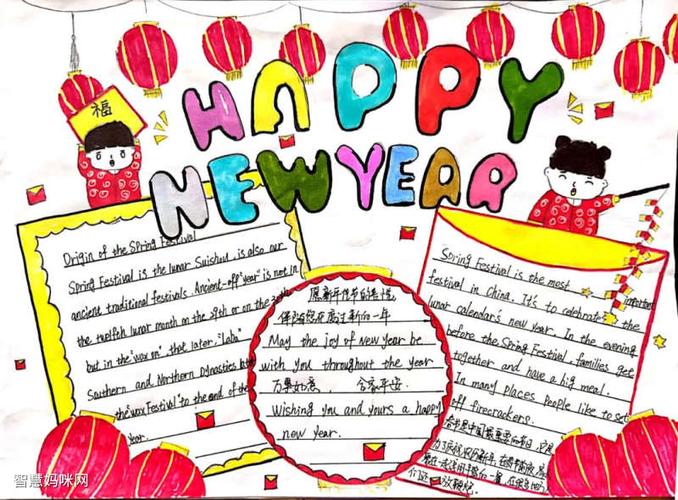 HAPPY
NEW YEAR
福
Origin of the Spring Festival
Spring Festival is the lunar Suishou, is also our
ancient traditional festivals. Ancient-off "year" is not in
the twelfth lunar month on the 29th or on the 30th
but in the "wax on", that later "Laba"
Southern and Northern Dynasties
the "wax Festival" to the end of the
year.
愿新年
新的一年
May the joy of New Year be
with you throughout the year
万事如意 合家平安
Wishing you and yours a happy
new year.
Spring Festival is the most important
festival in China. It's to celebrate the
lunar calendar's new year. In the evening
before the Spring Festival families get
together and have a big meal.
In many places people like to set
off firecrackers.
春节是中国最重要的节日
智慧妈咪网